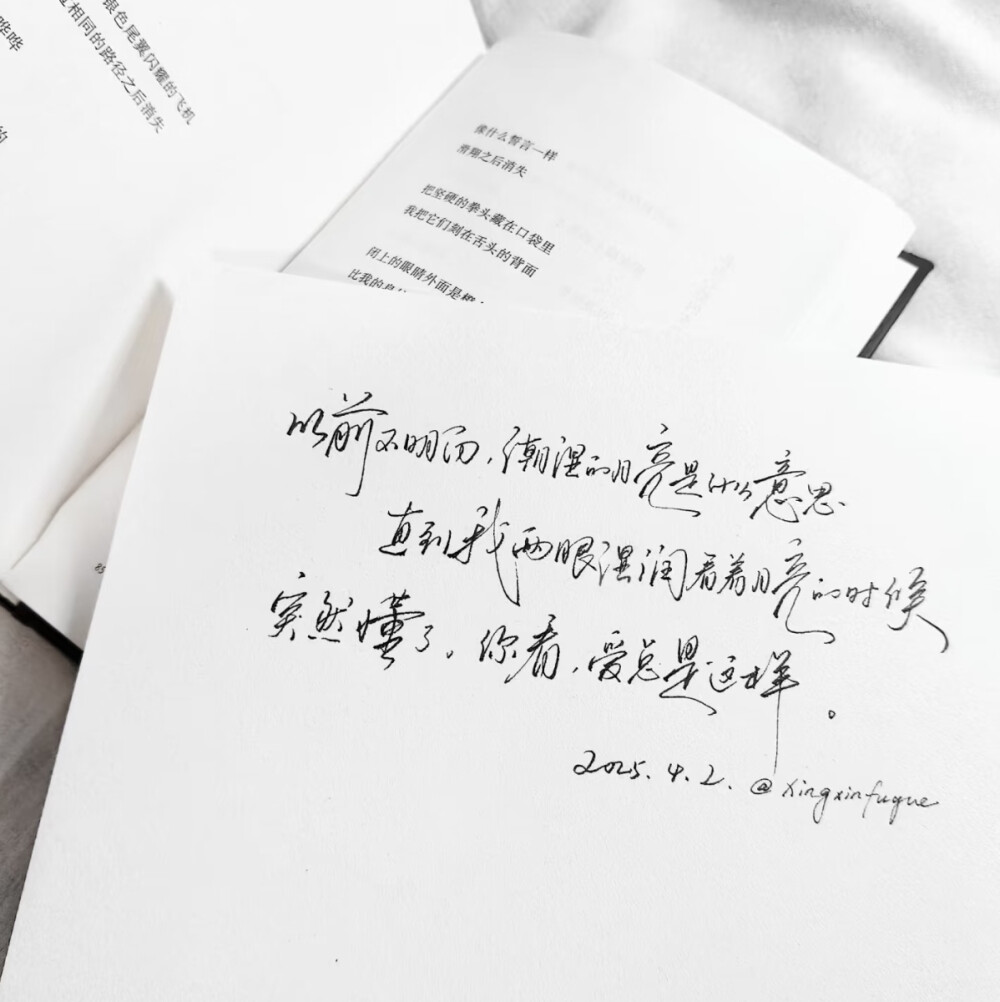 哗哗
银色尾翼闪耀的飞机
相同的路径之后消失
的
像什么誓言一样
滑翔之后消失
把坚硬的拳头藏在口袋里
我把它们刻在舌头的背面
闭上的眼睛外面是橙
比我的身
以前不明白,潮湿的月亮是什么意思
直到我两眼湿润看着月亮的时候
突然懂了。你看,爱总是这样。
2025.4.2. @xingxinfuyue